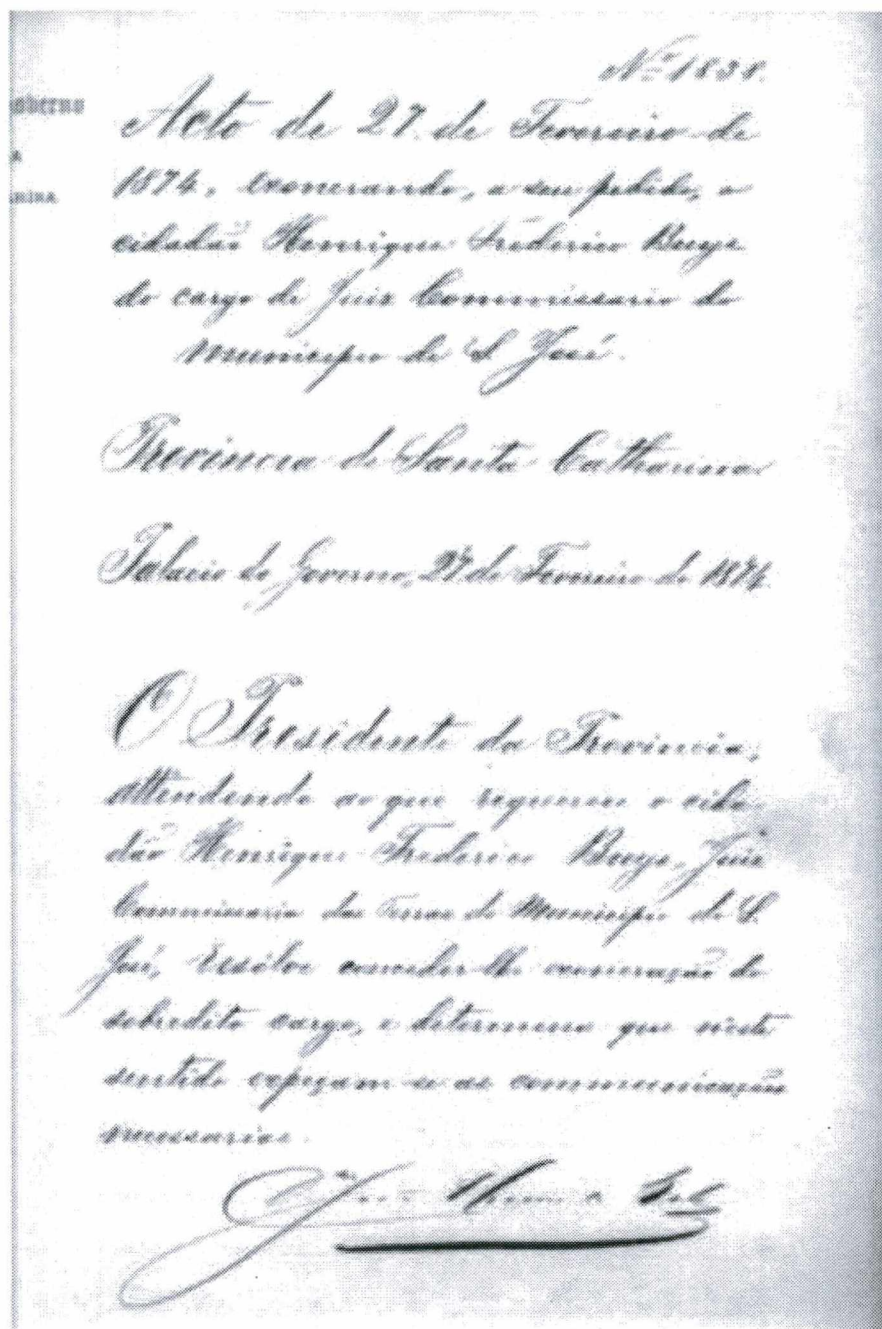 Nº 1838.
overno
A
arina
Acto de 27 de Fevereiro de
1874, exonerando, a seu pedido, o
cidadão Henrique Frederico
do cargo de Juiz Commissario do
Municipio de S. José.
Provincia de Santa Catharina
Palacio do Governo, 27 de Fevereiro de 1874
O Presidente da Provincia,
attendendo ao que requereu o cida-
dão Henrique Frederico Juiz
Commissario das Terras do Municipio de S.
José, resolve conceder-lhe exoneração do
sobredito cargo, e determina que neste
sentido expeçam-se as communicações
necessarias.